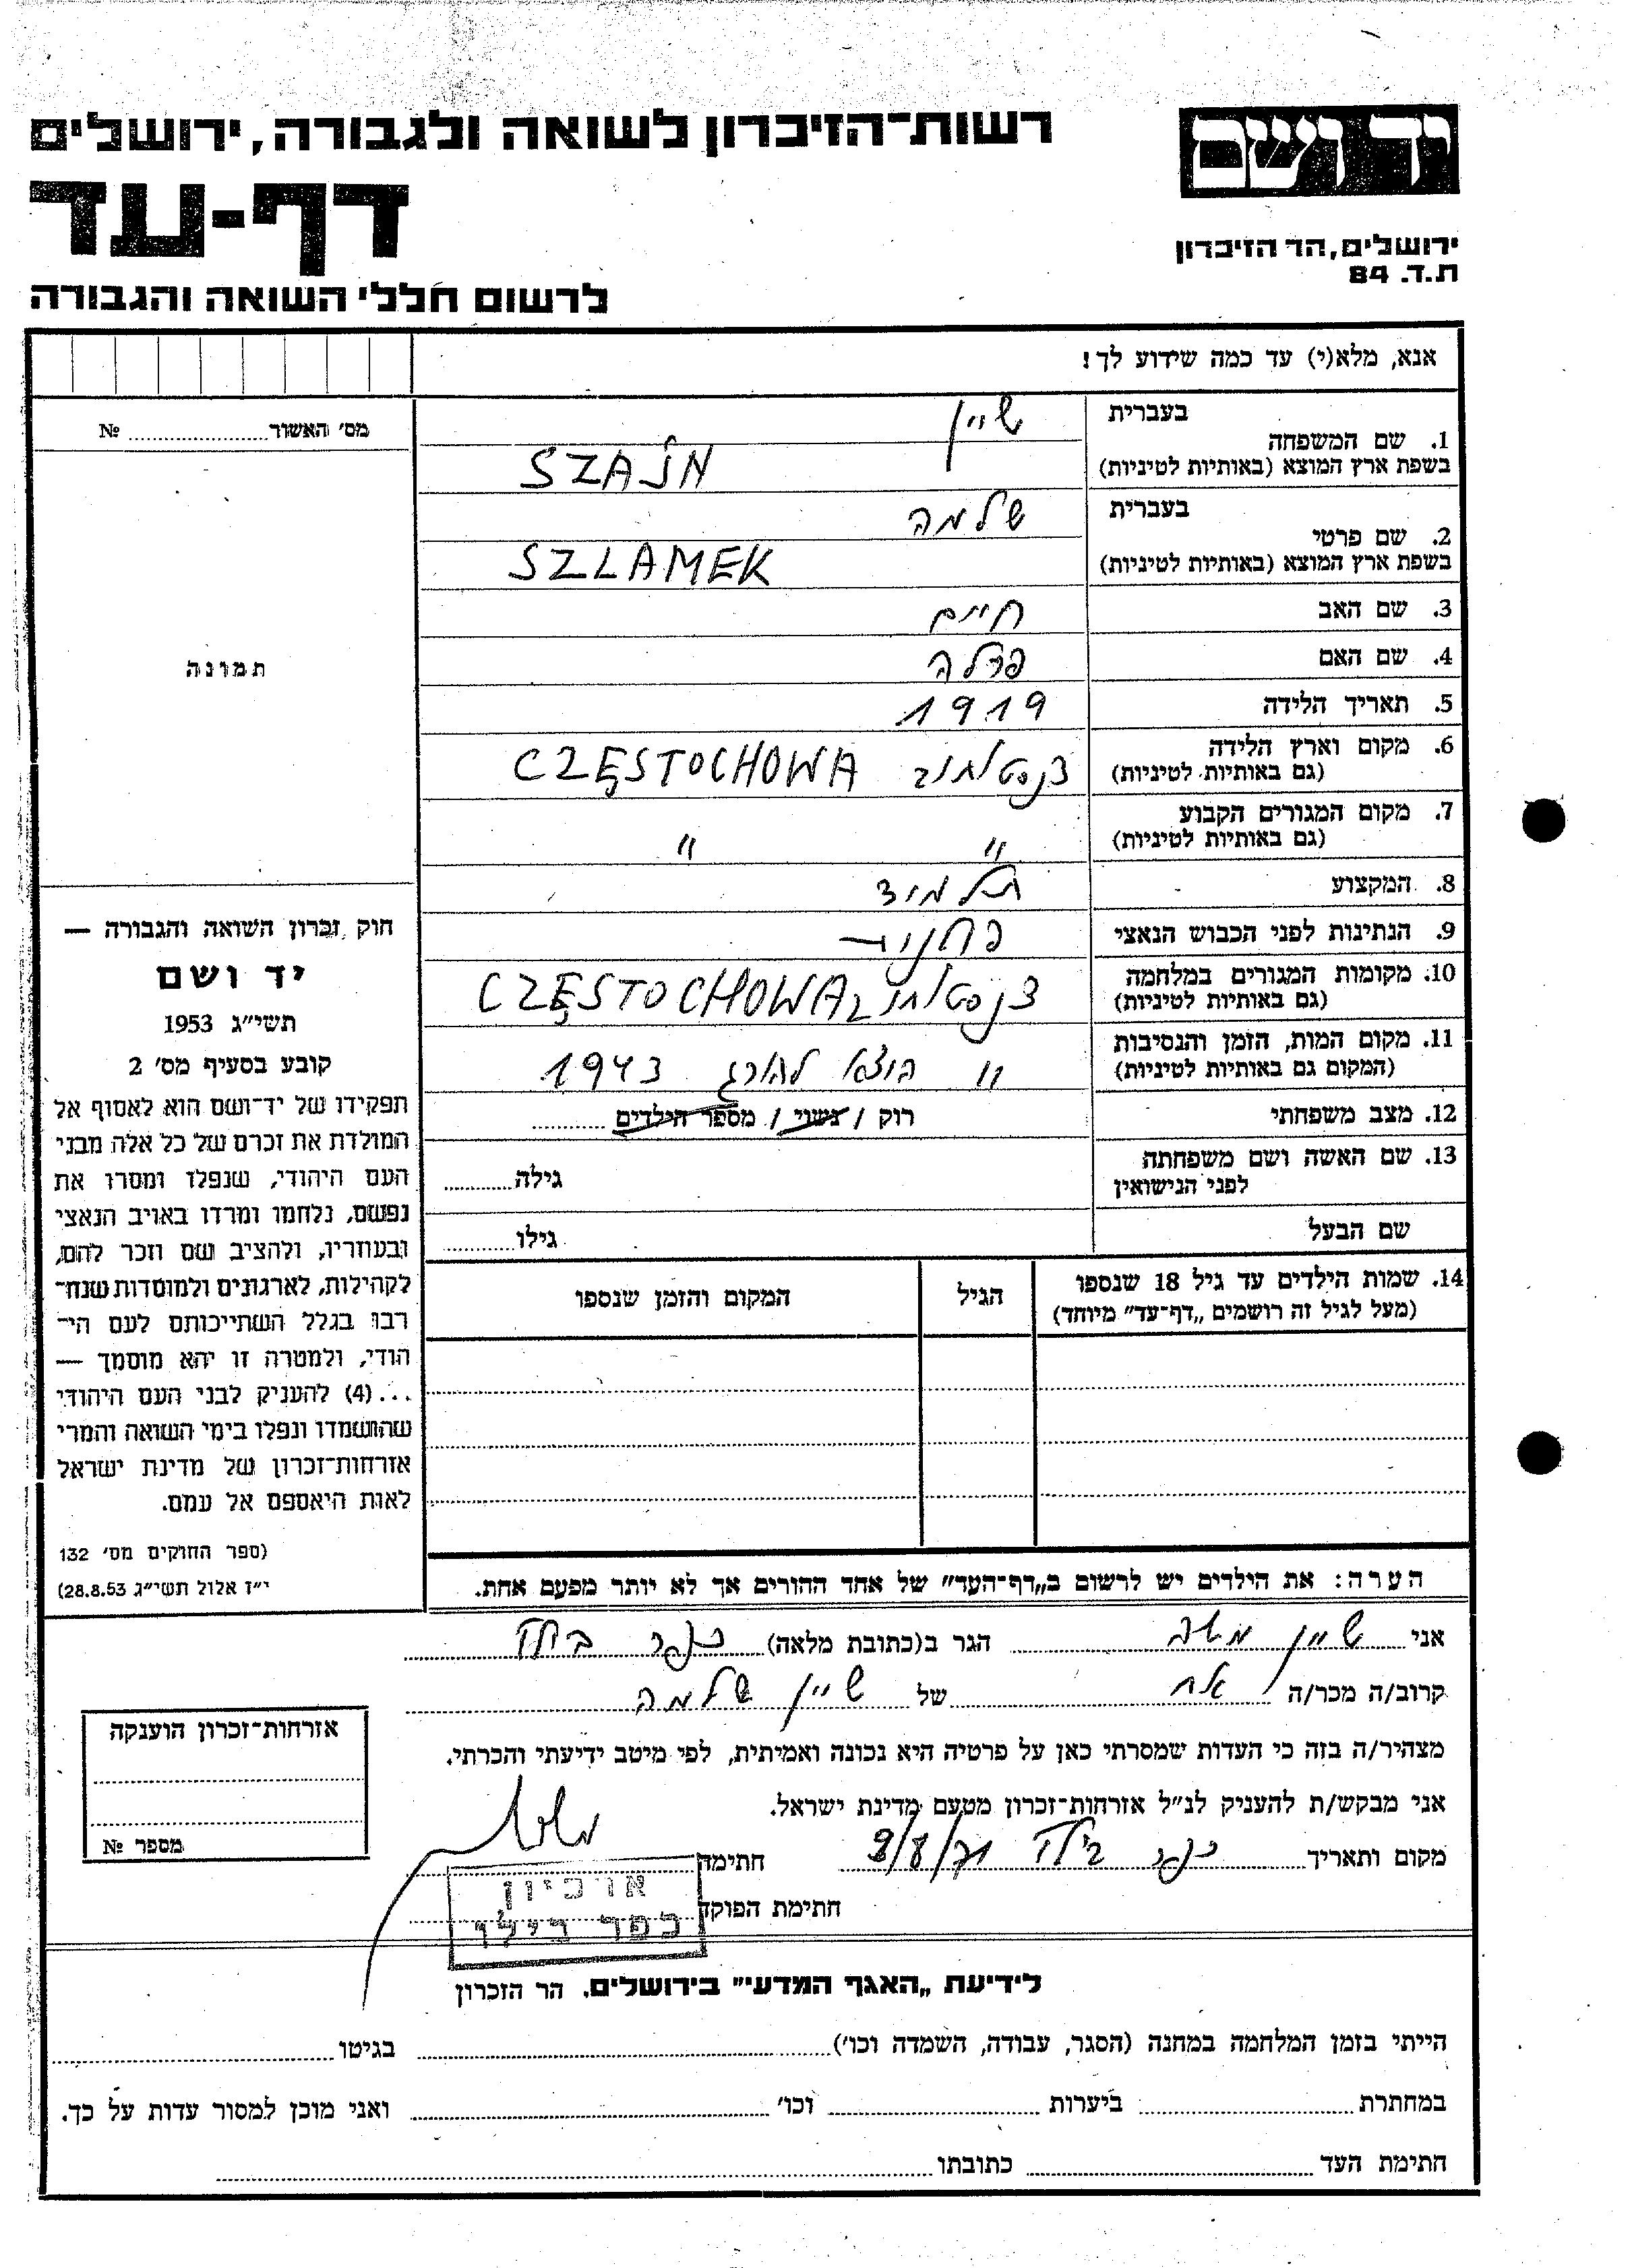 רשות-הזיכרון לשואה ולגבורה, ירושלים
יד ושם
דף-עד
ירושלים, הר הזיכרון
ת.ד. 84
לרשום חללי השואה והגבורה
אנא, מלא(י) עד כמה שידוע לך!
מס' האשור № 
תמונה
1. שם המשפחה
בעברית שיין
בשפת ארץ המוצא (באותיות לטיניות) SZAJN
2. שם פרטי
בעברית שלמה
בשפת ארץ המוצא (באותיות לטיניות) SZLAMEK
3. שם האב חיים
4. שם האם פרלה
5. תאריך הלידה 1919
6. מקום וארץ הלידה
(גם באותיות לטיניות) צ'נסטוחוב CZĘSTOCHOWA
7. מקום המגורים הקבוע
(גם באותיות לטיניות) " "
8. המקצוע תלמיד
9. הנתינות לפני הכבוש הנאצי
10. מקומות המגורים במלחמה
(גם באותיות לטיניות) צ'נסטוחוב CZĘSTOCHOWA
11. מקום המות, הזמן והנסיבות
(המקום גם באותיות לטיניות) " הוצא להורג 1943
12. מצב משפחתי רוק / נשוי / מספר הילדים
13. שם האשה ושם משפחתה
לפני הנישואין גילה
שם הבעל גילו
14. שמות הילדים עד גיל 18 שנספו
(מעל לגיל זה רושמים „דף-עד" מיוחד)
הגיל
המקום והזמן שנספו
חוק זכרון השואה והגבורה —
יד ושם
תשי"ג 1953
קובע בסעיף מס' 2
תפקידו של יד-ושם הוא לאסוף אל
המולדת את זכרם של כל אלה מבני
העם היהודי, שנפלו ומסרו את
נפשם, נלחמו ומרדו באויב הנאצי
ובעוזריו, ולהציב שם וזכר להם,
לקהילות, לארגונים ולמוסדות שנח-
רבו בגלל השתייכותם לעם הי-
הודי, ולמטרה זו יהא מוסמך —
...(4) להעניק לבני העם היהודי
שהושמדו ונפלו בימי השואה והמרי
אזרחות-זכרון של מדינת ישראל
לאות היאספם אל עמם.
(ספר החוקים מס' 132
י"ז אלול תשי"ג 28.8.53)
הערה: את הילדים יש לרשום ב„דף-העד" של אחד ההורים אך לא יותר מפעם אחת.
אני שיין משה הגר ב(כתובת מלאה) כפר בילו
קרוב/ה מכר/ה אח של שיין שלמה
מצהיר/ה בזה כי העדות שמסרתי כאן על פרטיה היא נכונה ואמיתית, לפי מיטב ידיעתי והכרתי.
אני מבקש/ת להעניק לנ"ל אזרחות-זכרון מטעם מדינת ישראל.
מקום ותאריך כפר בילו חתימה
חתימת הפוקד
ארכיון
כפר בילו
אזרחות-זכרון הוענקה
מספר №
לידיעת „האגף המדעי" בירושלים. הר הזכרון
הייתי בזמן המלחמה במחנה (הסגר, עבודה, השמדה וכו') בגיטו
במחתרת ביערות וכו' ואני מוכן למסור עדות על כך.
חתימת העד כתובתו